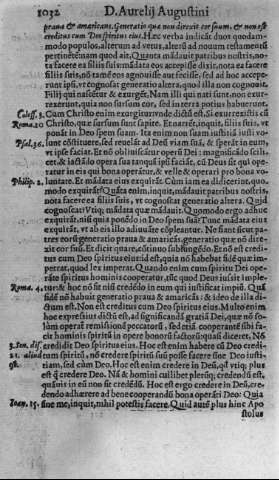 1032 D. Aurelij Augustini
praua & amaricans. Generatio quæ non direxit cor suum, & non est
creditus cum Deo spiritus eius. Hæc verba indicāt duos quodam-
modo populos, alterum ad vetus, alterū ad nouum testamentū
pertinētem: quod ait, Quāta mādauit patribus nostris,
nota facere ea filiis suis: māndata eos accepisse dixit, nota ea facere
filiis suis, nō tamē eos agnouisse aut fecisse, sed ad hoc accepe-
runt ipsi, vt cognoscat generatio altera, quod illa non cognouit.
Filij qui nascētur & exurgēt. Nam illi qui nati sunt, nō exur-
rexerunt, quia non sursum cor, sed in terra potius habuerunt.
Coloss. 3. Cum Christo enim exurgitur: vnde dictū est, Si exurrexistis cū
Roma. 10 Christo, quæ sursum sunt sapite. Et narrēt, inquit, filiis suis, vt
ponāt in Deo spem suam. Ita enim non suam iustitiā iusti vo-
Psal. 36. lunt cōstituere, sed reuelāt ad Deū viam suā, & sperāt in eum,
vt ipse faciat. Et nō obliuiscātur operū Dei: magnificādo scili-
cet & iactādo opera sua tanquā ipsi faciāt, cū Deus sit qui ope-
Philip. 2. ratur in eis qui bona operātur, & velle & operari pro bona vo-
luntate. Et mādata eius exquirāt. Cùm iam ea didicerint, quo-
modo exquirāt? Quāta enim, inquit, mādauit patribus nostris,
nota facere ea filiis suis, vt cognoscat generatio altera. Quid
cognoscat? Vtiq; mādata quæ mādauit. Quomodo ergo adhuc
exquirāt, nisi quia ponēdo in Deo spem suā? Tunc mādata eius
exquirāt, vt ab eis illo adiuuāte cōpleantur. Ne fiant sicut pa-
tres eorū generatio praua & amaricās, generatio quæ nō dire-
xit cor suū. Et dicit quare, cōtinuo subiungēdo. Et nō est credi-
tus cum Deo spiritus eius: id est, quia nō habebat fidē quæ im-
petrat, quod lex imperat. Quando enim cum spiritu Dei ope-
rāte spiritus hominis cooperatur, tūc quod Deus iussit imple-
Roma. 4. tur: & hoc nō fit nisi credēdo in eum qui iustificat impiū. Quā
fidē nō habuit generatio praua & amaricās: & ideo de illa di-
ctum est: Non est creditus cum Deo spiritus eius. Multo enim
hoc expressius dictū est, ad significandā gratiā Dei, quæ nō so-
lùm operat̄ remissionē peccatorū, sed etiā cooperantē sibi fa-
cit hominis spiritū in opere bonorū factorū: quasi diceret, Nō
3. Sen. dis. credidit Deo spiritus eius. Hoc est enim habere cū Deo credi-
21. aliud tum spiritū, nō credere spiritū suū posse facere sine Deo iusti-
est. tiā, sed cùm Deo. Hoc est enim credere in Deū, qd̄ vtiq; plus
est q̄ credere Deo. Nā & homini cuilibet plerūq; credendū est,
quāuis in eū non sit credēdū. Hoc est ergo credere in Deū, cre-
dendo adhærere ad bene cooperandū bona operāti Deo: Quia
Ioan. 15. sine me, inquit, nihil potestis facere. Quid autē plus hinc Apo-
stolus